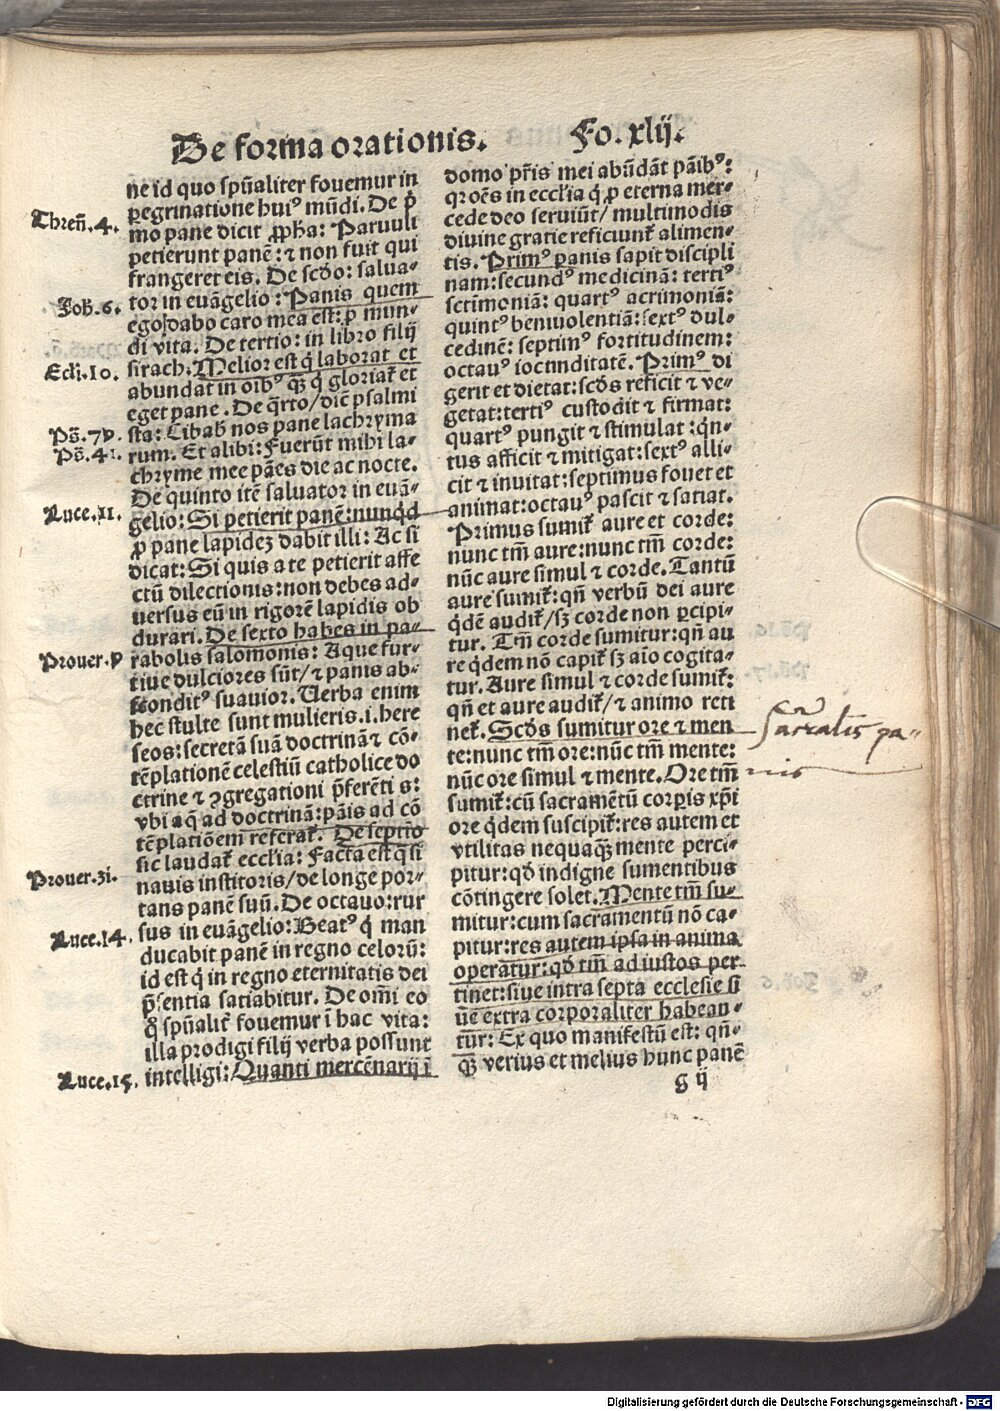 De forma orationis. Fo. xlij.
ne id quo spũaliter fouemur in
ꝑegrinatione huiꝰ mũdi. De p̃
Threñ. 4.
mo pane dicit ꝓph̃a: Paruuli
petierunt panẽ: ⁊ non fuit qui
frangeret eis. De scd̃o: salua⸗
Joh̃. 6.
tor in euãgelio: Panis quem
ego dabo caro mea est: ꝓ mun⸗
di vita. De tertio: in libro filij
Ecći. 10.
sirach. Melior est q̇ laborat et
abundat in oĩbꝰ ꝙ̃ q̇ gloriat̃ et
eget pane. De q̃rto/ dicẽ psalmi
Ps̃. 79.
sta: Cibab̃ nos pane lachryma
Ps̃. 41.
rum. Et alibi: Fuerũt mihi la⸗
chryme mee pães die ac nocte.
De quinto itẽ saluator in euã⸗
Luce. 11.
gelio: Si petierit panẽ: nunq̇d
ꝓ pane lapidez dabit illi: Ac si
dicat: Si quis a te petierit affe
ctũ dilectionis: non debes ad⸗
uersus eũ in rigorẽ lapidis ob
durari. De sexto habes in pa⸗
Prouer. 9
rabolis salomonis: Aque fur⸗
tiue dulciores sũt/ ⁊ panis ab⸗
sconditꝰ suauior. Uerba enim
hec stulte sunt mulieris. i. here
seos: secretã suã doctrinã ⁊ cõ⸗
tẽplationẽ celestiũ catholice do
ctrine ⁊ ꝯgregationi p̃ferẽti s:
vbi aq̃ ad doctrinã: pãis ad cõ
tẽplatiõem referat̃. De septĩo
sic laudat̃ eccl̃ia: Facta est q̃si
Prouer. 31.
nauis institoris/ de longe por⸗
tans panẽ suũ. De octauo: rur
Luce. 14.
sus in euãgelio: Beatꝰ q̇ man
ducabit panẽ in regno celorũ:
id est q̇ in regno eternitatis dei
p̃sentia satiabitur. De om̃i eo
q̊ spũalit̃ fouemur ĩ hac vita:
illa prodigi filij verba possunt
Luce. 15.
intelligi: Quanti mercẽnarij ĩ
domo pr̃is mei abũdãt pãibꝰ:
qꝛ oẽs in eccl̃ia q̇ ꝓ eterna mer⸗
cede deo seruiũt/ multimodis
diuine gratie reficiunt̃ alimen⸗
tis. Primꝰ panis sapit discipli
nam: secundꝰ medicinã: tertiꝰ
sctimoniã: quartꝰ acrimoniã:
quintꝰ beniuolentiã: sextꝰ dul⸗
cedinẽ: septimꝰ fortitudinem:
octauꝰ iocunditatẽ. Primꝰ di
gerit et dietat: scd̃s reficit ⁊ ve⸗
getat: tertiꝰ custodit ⁊ firmat:
quartꝰ pungit ⁊ stimulat: q̇n⸗
tus afficit ⁊ mitigat: sextꝰ alli⸗
cit ⁊ inuitat: septimus fouet et
animat: octauꝰ pascit ⁊ satiat.
Primus sumit̃ aure et corde:
nunc tm̃ aure: nunc tm̃ corde:
nũc aure simul ⁊ corde. Tantũ
aure sumit̃: qñ verbũ dei aure
q̇dẽ audit̃/ sꝫ corde non ꝑcipi⸗
tur. Tm̃ corde sumitur: qñ au
re q̇dem nõ capit̃ sꝫ aĩo cogita⸗
tur. Aure simul ⁊ corde sumit̃:
qñ et aure audit̃/ ⁊ animo reti
net̃. Scd̃s sumitur ore ⁊ men
Sacr̃alis pa⸗
te: nunc tm̃ ore: nũc tm̃ mente:
nũc ore simul ⁊ mente. Ore tm̃
nis
sumit̃: cũ sacramẽtũ corꝑis xp̃i
ore q̇dem suscipit̃: res autem et
vtilitas nequaꝙ̃ mente perci⸗
pitur: qd̃ indigne sumentibus
cõtingere solet. Mente tm̃ su⸗
mitur: cum sacramentũ nõ ca⸗
pitur: res autem ipsa in anima
operatur: qd̃ tm̃ ad iustos per⸗
tinet: siue intra septa ecclesie si
ue extra corporaliter habean⸗
tur: Ex quo manifestũ est: qñ⸗
ꝙ̃ verius et melius hunc panẽ
g ij
Digitalisierung gefördert durch die Deutsche Forschungsgemeinschaft - DFG